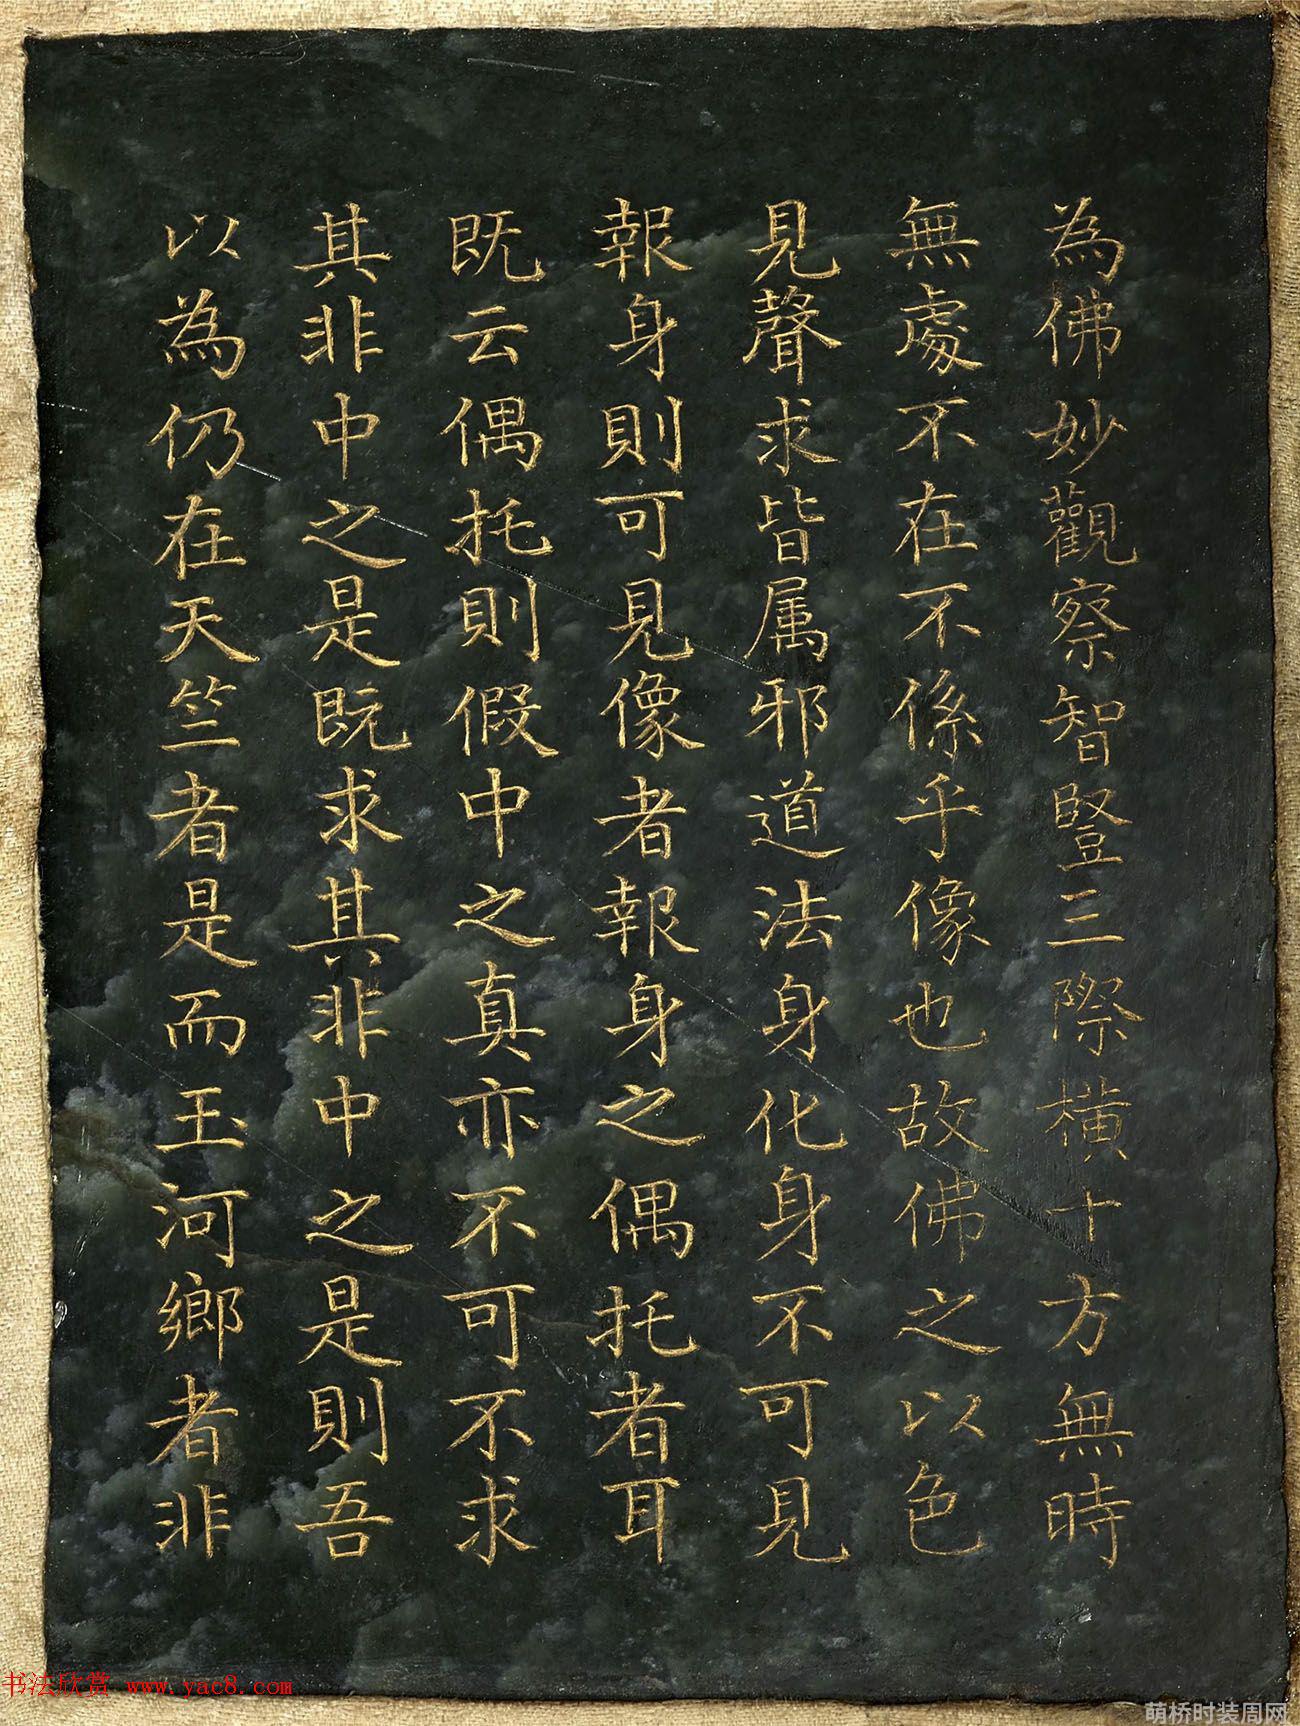 為佛妙觀察智豎三際橫十方無時
無處不在不係乎像也故佛之以色
見聲求皆属邪道法身化身不可見
報身則可見像者報身之偶托者耳
既云偶托則假中之真亦不可不求
其非中之是既求其非中之是則吾
以為仍在天竺者是而玉河鄉者非
书法欣赏 www.yac8.com
萌桥时装周网